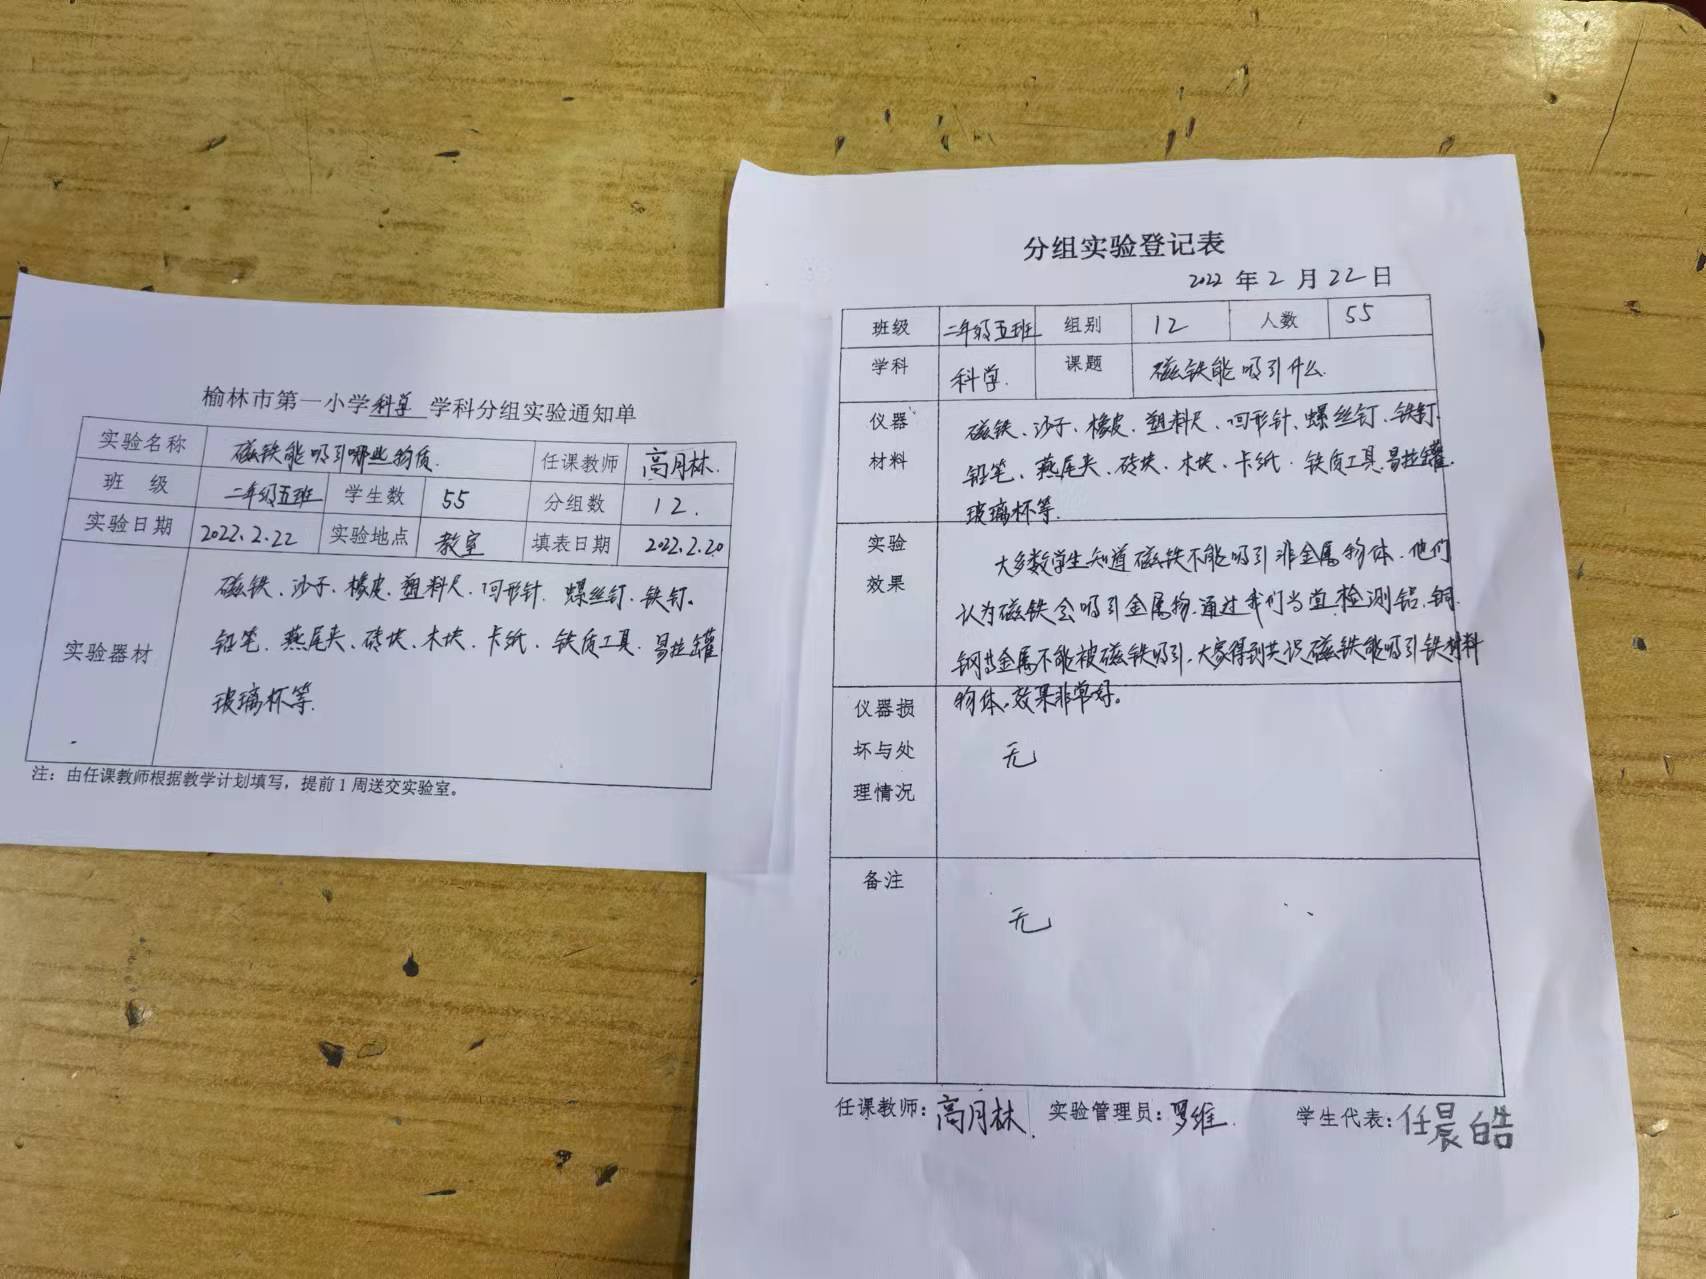 榆林市第一小学科学学科分组实验通知单
实验名称 磁铁能吸引哪些物质. 任课教师 高月林.
班 级 二年级五班 学生数 55 分组数 12.
实验日期 2022.2.22 实验地点 教室 填表日期 2022.2.20
实验器材
磁铁、沙子、橡皮、塑料尺、回形针、螺丝钉、铁钉、
铅笔、燕尾夹、砖块、木块、卡纸、铁质工具、易拉罐
玻璃杯等.
注：由任课教师根据教学计划填写，提前1周送交实验室。
分组实验登记表
2022 年 2 月 22 日
班级 二年级五班 组别 12 人数 55
学科 科学. 课题 磁铁能吸引什么.
仪器
材料
磁铁、沙子、橡皮、塑料尺、回形针、螺丝钉、铁钉、
铅笔、燕尾夹、砖块、木块、卡纸、铁质工具、易拉罐、
玻璃杯等.
实验
效果
大多数学生知道磁铁不能吸引非金属物体、他们
认为磁铁会吸引金属物.通过我们当堂检测铝、铜、
钢等金属不能被磁铁吸引、大家得到共识磁铁能吸引铁材料
物体。效果非常好。
仪器损
坏与处
理情况
无
备注
无
任课教师：高月林. 实验管理员：罗维. 学生代表：任晨皓